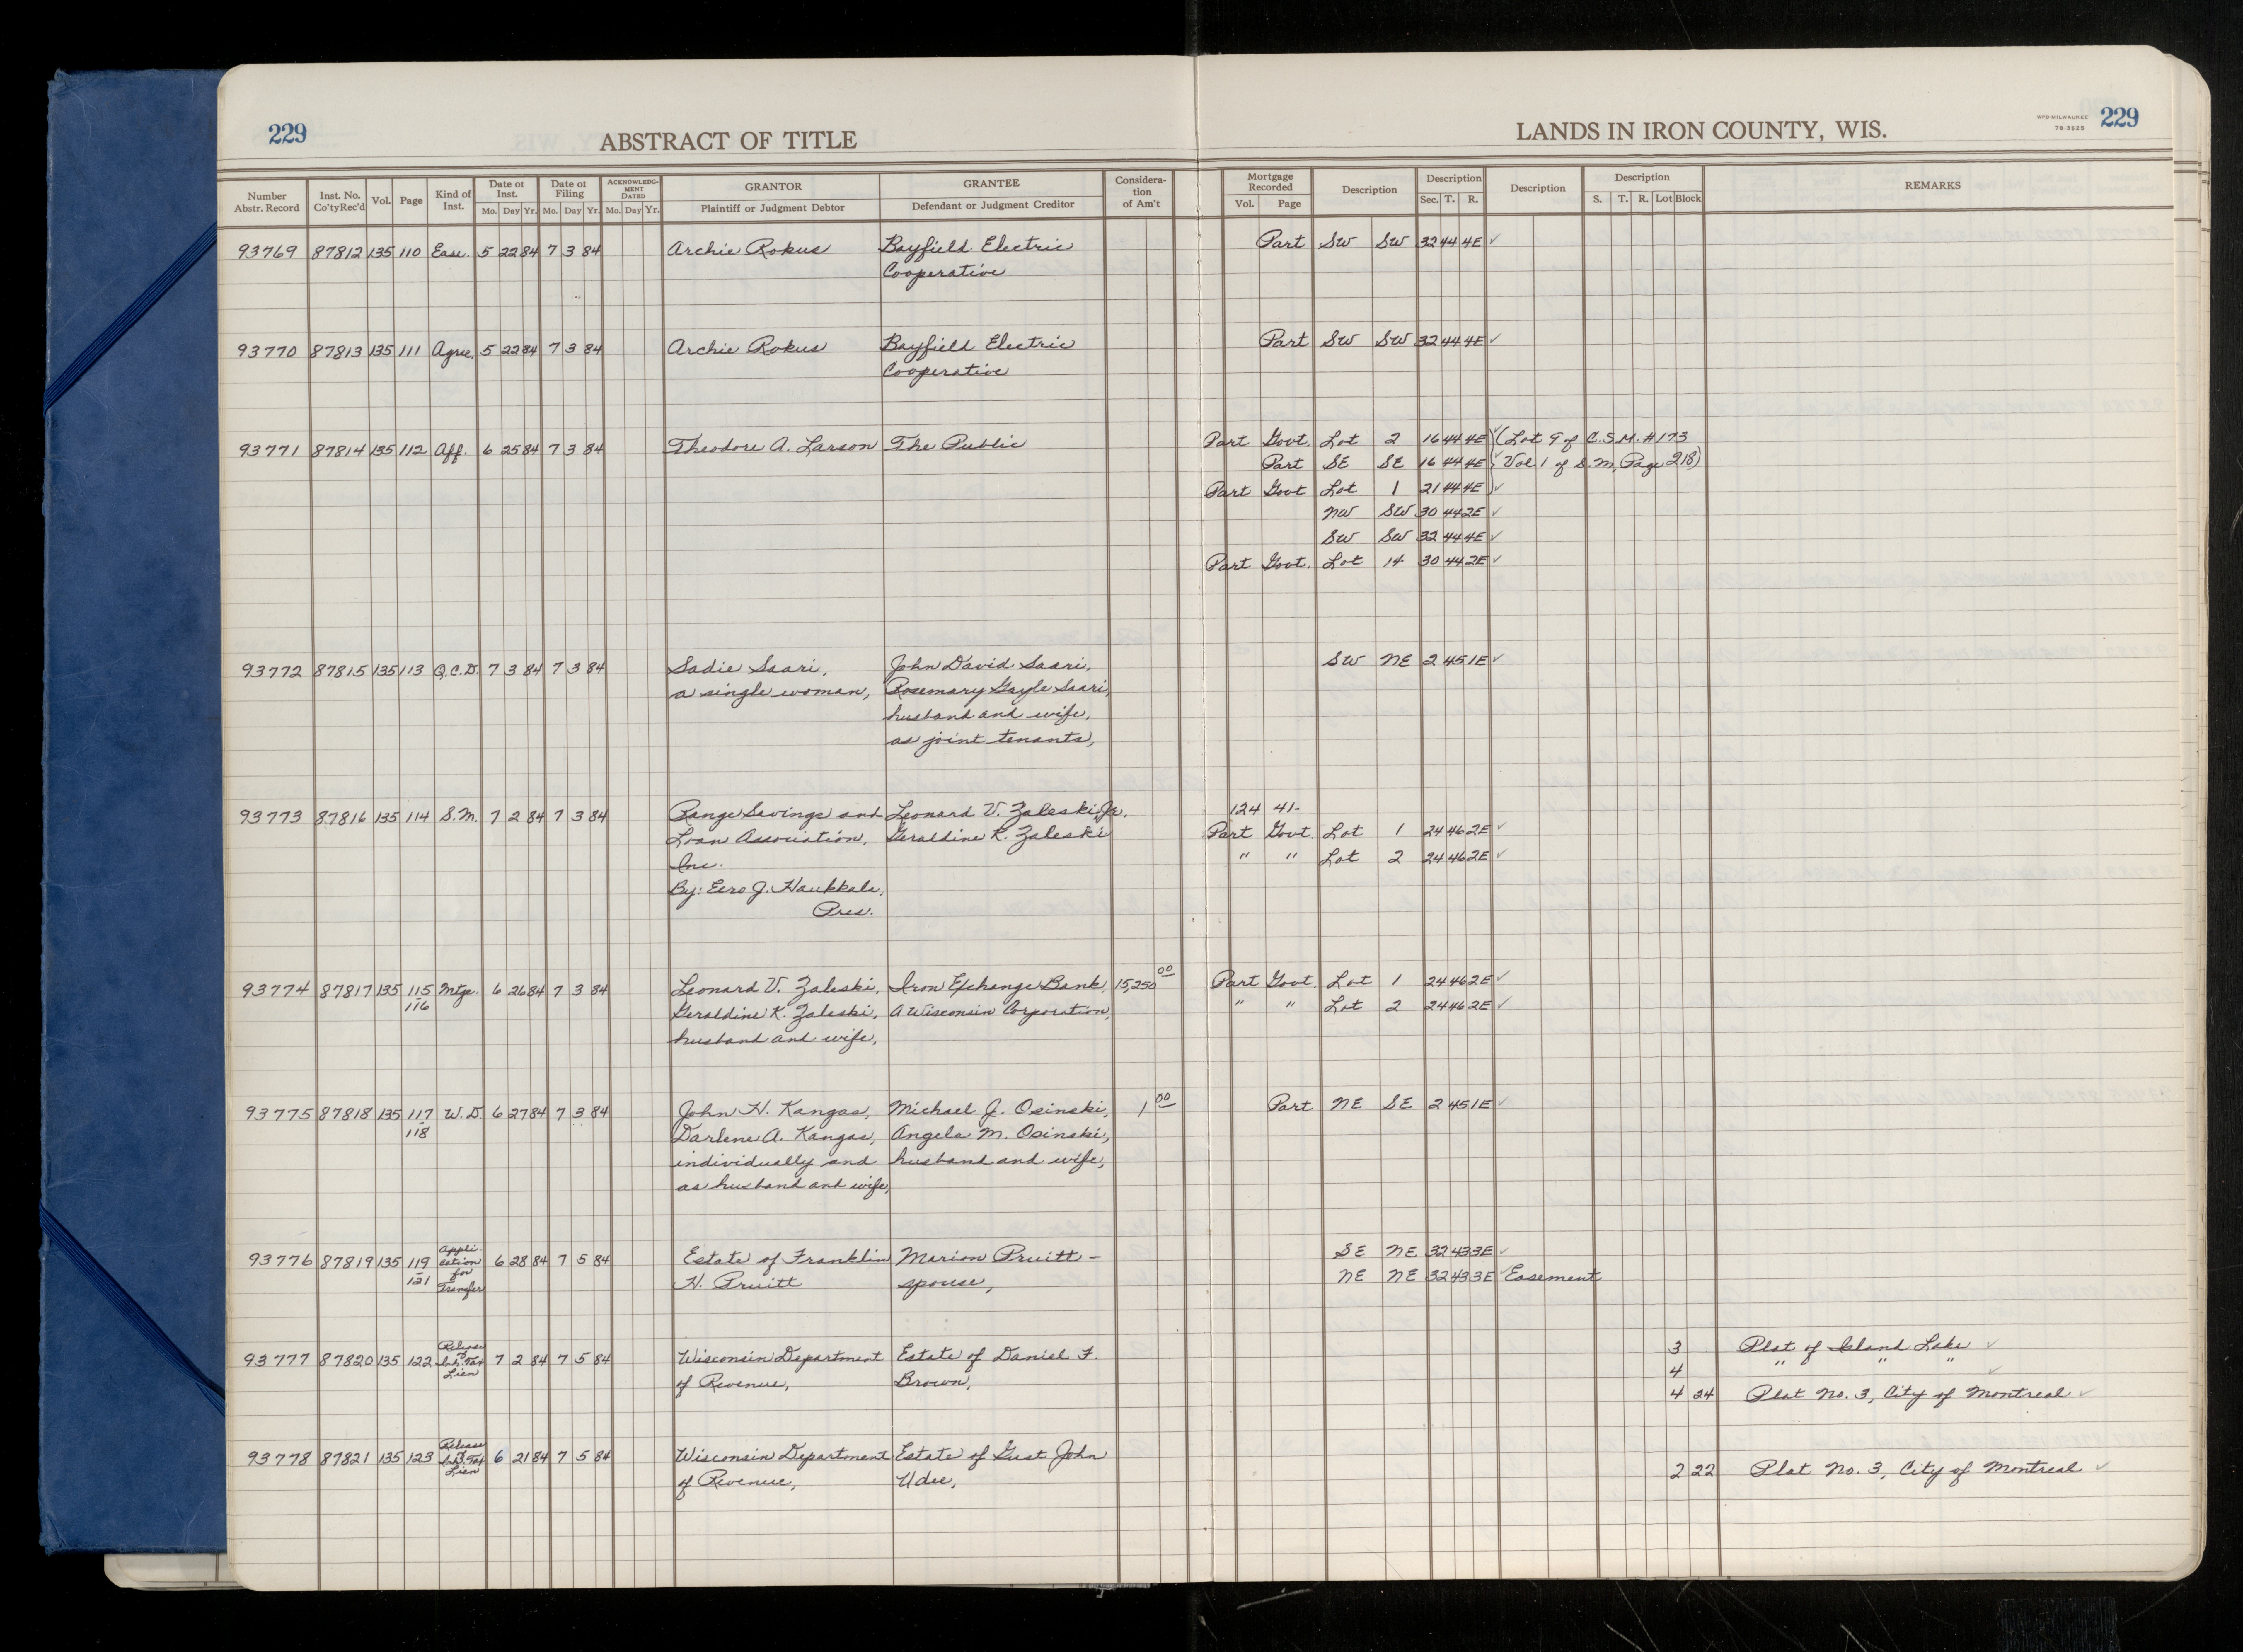 229 ABSTRACT OF TITLE LANDS IN IRON COUNTY, WIS. WPB-MILWAUKEE 78-3525 229
Number Abstr. Record Inst. No. Co'ty Rec'd Vol. Page Kind of Inst. Date of Inst. Mo. Day Yr. Date of Filing Mo. Day Yr. ACKNOWLEDGMENT DATED Mo. Day Yr. GRANTOR Plaintiff or Judgment Debtor GRANTEE Defendant or Judgment Creditor Consideration of Am't Mortgage Recorded Vol. Page Description Description Sec. T. R. Description Description S. T. R. Lot Block REMARKS
93769 87812 135 110 Ease. 5 22 84 7 3 84 Archie Rokus Bayfield Electric Part SW SW 32 44 4E ✓
Cooperative
93770 87813 135 111 Agree. 5 22 84 7 3 84 Archie Rokus Bayfield Electric Part SW SW 32 44 4E ✓
Cooperative
93771 87814 135 112 Aff. 6 25 84 7 3 84 Theodore A. Larson The Public Part Govt. Lot 2 16 44 4E ✓ (Lot 9 of C.S.M. #173
Part SE SE 16 44 4E ✓ Vol. 1 of S.M. Page 218)
Part Govt Lot 1 21 44 4E ✓
NW SW 30 44 2E ✓
SW SW 32 44 4E ✓
Part Govt. Lot 14 30 44 2E ✓
93772 87815 135 113 Q.C.D. 7 3 84 7 3 84 Sadie Saari, John David Saari, SW NE 2 45 1E ✓
a single woman, Rosemary Gayle Saari,
husband and wife,
as joint tenants,
93773 87816 135 114 S.M. 7 2 84 7 3 84 Range Savings and Leonard V. Zaleski, Jr. 124 41-
Loan Association, Geraldine K. Zaleski Part Govt. Lot 1 24 46 2E ✓
Inc. " " Lot 2 24 46 2E ✓
By: Eero J. Haukkala,
Pres.
93774 87817 135 115 Mtge. 6 26 84 7 3 84 Leonard V. Zaleski, Iron Exchange Bank, 15,250 00 Part Govt. Lot 1 24 46 2E ✓
-116 Geraldine K. Zaleski, A Wisconsin Corporation, " " Lot 2 24 46 2E ✓
husband and wife,
93775 87818 135 117 W.D. 6 27 84 7 3 84 John H. Kangas, Michael J. Osinski, 1 00 Part NE SE 2 45 1E ✓
-118 Darlene A. Kangas, Angela M. Osinski,
individually and husband and wife,
as husband and wife,
93776 87819 135 119 Application for Transfer 6 28 84 7 5 84 Estate of Franklin Marion Pruitt - SE NE 32 43 3E ✓
-121 H. Pruitt spouse, NE NE 32 43 3E ✓ Easement
93777 87820 135 122 Release of Inh. Tax Lien 7 2 84 7 5 84 Wisconsin Department Estate of Daniel F. 3 Plat of Island Lake ✓
of Revenue, Brown, 4 " " " ✓
4 24 Plat No. 3, City of Montreal ✓
93778 87821 135 123 Release of Inh. Tax Lien 6 21 84 7 5 84 Wisconsin Department Estate of Gust John 2 22 Plat No. 3, City of Montreal ✓
of Revenue, Udee,